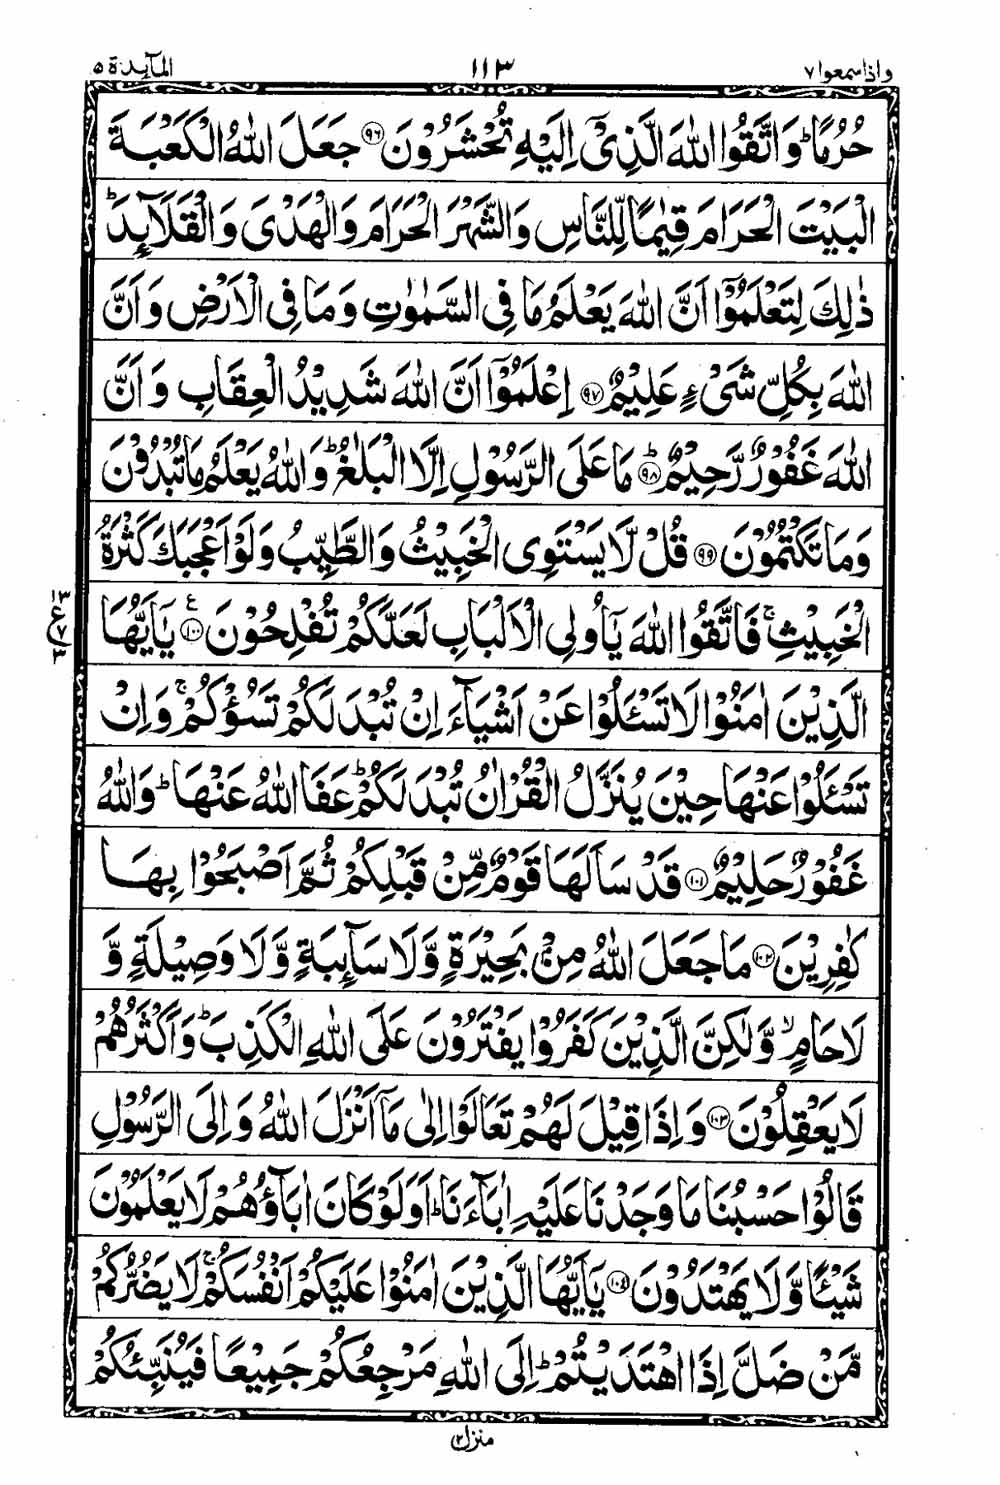 وَاِذَاسَمِعُوا ٧ ١١٣ الْمَآىِٕدَة ٥
حُرُمًا ؕ وَاتَّقُوا اللّٰهَ الَّذِیْۤ اِلَیْهِ تُحْشَرُوْنَ ۝٩٦ جَعَلَ اللّٰهُ الْكَعْبَةَ
الْبَیْتَ الْحَرَامَ قِیٰمًا لِّلنَّاسِ وَالشَّهْرَ الْحَرَامَ وَالْهَدْیَ وَالْقَلَآىِٕدَ ؕ
ذٰلِكَ لِتَعْلَمُوْۤا اَنَّ اللّٰهَ یَعْلَمُ مَا فِی السَّمٰوٰتِ وَمَا فِی الْاَرْضِ وَاَنَّ
اللّٰهَ بِكُلِّ شَیْءٍ عَلِیْمٌ ۝٩٧ اِعْلَمُوْۤا اَنَّ اللّٰهَ شَدِیْدُ الْعِقَابِ وَاَنَّ
اللّٰهَ غَفُوْرٌ رَّحِیْمٌ ۝٩٨ؕ مَا عَلَی الرَّسُوْلِ اِلَّا الْبَلٰغُ ؕ وَاللّٰهُ یَعْلَمُ مَا تُبْدُوْنَ
وَمَا تَكْتُمُوْنَ ۝٩٩ قُلْ لَّا یَسْتَوِی الْخَبِیْثُ وَالطَّیِّبُ وَلَوْ اَعْجَبَكَ كَثْرَةُ
الْخَبِیْثِ ۚ فَاتَّقُوا اللّٰهَ یٰۤاُولِی الْاَلْبَابِ لَعَلَّكُمْ تُفْلِحُوْنَ ۝١٠٠ ع یٰۤاَیُّهَا
١٣ ع ٧ ٣
الَّذِیْنَ اٰمَنُوْا لَا تَسْـَٔلُوْا عَنْ اَشْیَآءَ اِنْ تُبْدَ لَكُمْ تَسُؤْكُمْ ۚ وَاِنْ
تَسْـَٔلُوْا عَنْهَا حِیْنَ یُنَزَّلُ الْقُرْاٰنُ تُبْدَ لَكُمْ ؕ عَفَا اللّٰهُ عَنْهَا ؕ وَاللّٰهُ
غَفُوْرٌ حَلِیْمٌ ۝١٠١ قَدْ سَاَلَهَا قَوْمٌ مِّنْ قَبْلِكُمْ ثُمَّ اَصْبَحُوْا بِهَا
كٰفِرِیْنَ ۝١٠٢ مَا جَعَلَ اللّٰهُ مِنْۢ بَحِیْرَةٍ وَّلَا سَآىِٕبَةٍ وَّلَا وَصِیْلَةٍ وَّ
لَا حَامٍ ۙ وَّلٰكِنَّ الَّذِیْنَ كَفَرُوْا یَفْتَرُوْنَ عَلَی اللّٰهِ الْكَذِبَ ؕ وَاَكْثَرُهُمْ
لَا یَعْقِلُوْنَ ۝١٠٣ وَاِذَا قِیْلَ لَهُمْ تَعَالَوْا اِلٰی مَاۤ اَنْزَلَ اللّٰهُ وَاِلَی الرَّسُوْلِ
قَالُوْا حَسْبُنَا مَا وَجَدْنَا عَلَیْهِ اٰبَآءَنَا ؕ اَوَلَوْ كَانَ اٰبَآؤُهُمْ لَا یَعْلَمُوْنَ
شَیْـًٔا وَّلَا یَهْتَدُوْنَ ۝١٠٤ یٰۤاَیُّهَا الَّذِیْنَ اٰمَنُوْا عَلَیْكُمْ اَنْفُسَكُمْ ۚ لَا یَضُرُّكُمْ
مَّنْ ضَلَّ اِذَا اهْتَدَیْتُمْ ؕ اِلَی اللّٰهِ مَرْجِعُكُمْ جَمِیْعًا فَیُنَبِّئُكُمْ
منزل ٢